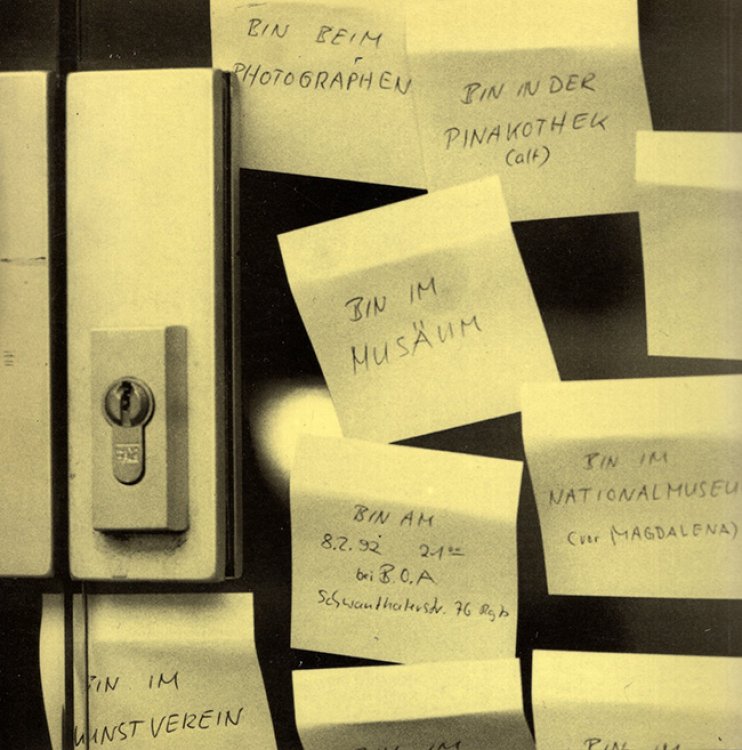 BIN BEIM
PHOTOGRAPHEN
BIN IN DER
PINAKOTHEK
(alt)
BIN IM
MUSÄUM
BIN IM
NATIONALMUSEU
(vor MAGDALENA)
BIN AM
8.2.92 21 00
bei B.O.A
Schwanthalerstr. 76 Rgb
BIN IM
KUNSTVEREIN
BIN IM
BIN IM